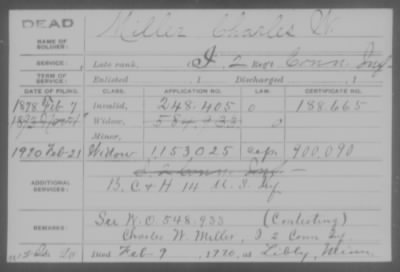 DEAD
NAME OF SOLDIER: Miller Charles W.
SERVICE: Late rank, I 2 Regt Conn Inf
TERM OF SERVICE: Enlisted , 1 Discharged , 1
DATE OF FILING. CLASS. APPLICATION NO. LAW. CERTIFICATE NO.
1878 Feb 7 Invalid, 248.405 0 188.665
Widow, 584.933 0
Minor,
1920 Feb-21 Widow 1,153,025 900,090
ADDITIONAL SERVICES: B. C & H 14 U.S. Inf
REMARKS: See W.O. 548.933 (Contesting)
Charles W. Miller, I 2 Conn Inf
Died Feb 9, 1920, at Libby, Minn.